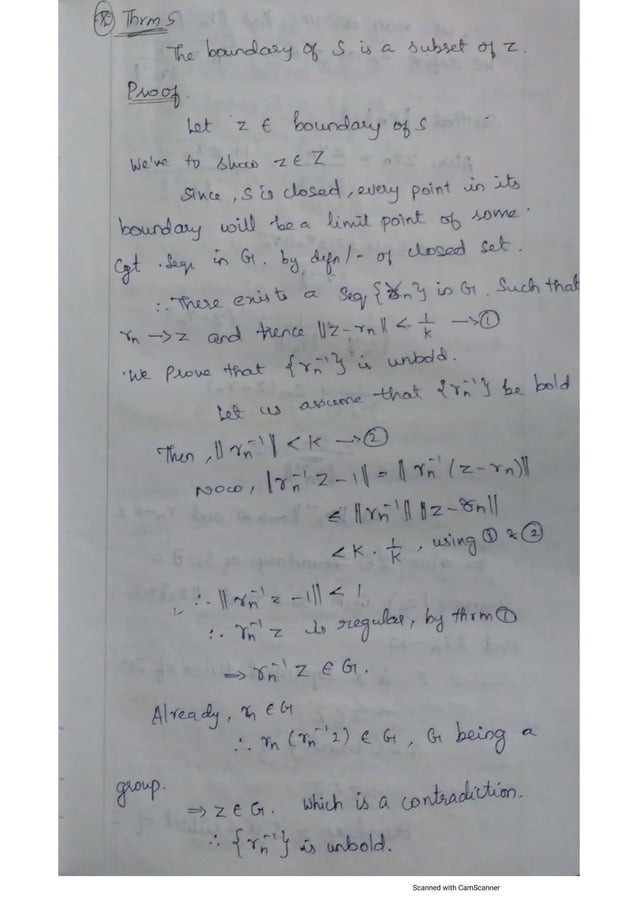 Thrm 5
The boundary of S is a subset of Z.
Proof
Let z ∈ boundary of S
We've to show z ∈ Z
Since, S is closed, every point in its
boundary will be a limit point of some
Cgt. Seq. in G. by defn/- of closed set.
∴ There exists a seq {rn} in G. Such that
rn → z and hence ||z - rn|| < 1/k → ①
We prove that {rn⁻¹} is unbdd.
Let us assume that {rn⁻¹} be bdd
Then, ||rn⁻¹|| < K → ②
Now, ||rn⁻¹z - 1|| = ||rn⁻¹(z - rn)||
≤ ||rn⁻¹|| ||z - rn||
< K. 1/K, using ① & ②
∴ ||rn⁻¹z - 1|| < 1
∴ rn⁻¹z is regular, by thrm ①
⇒ rn⁻¹z ∈ G.
Already, rn ∈ G
∴ rn(rn⁻¹z) ∈ G, G being a
group.
⇒ z ∈ G. Which is a contradiction.
∴ {rn⁻¹} is unbdd.
Scanned with CamScanner